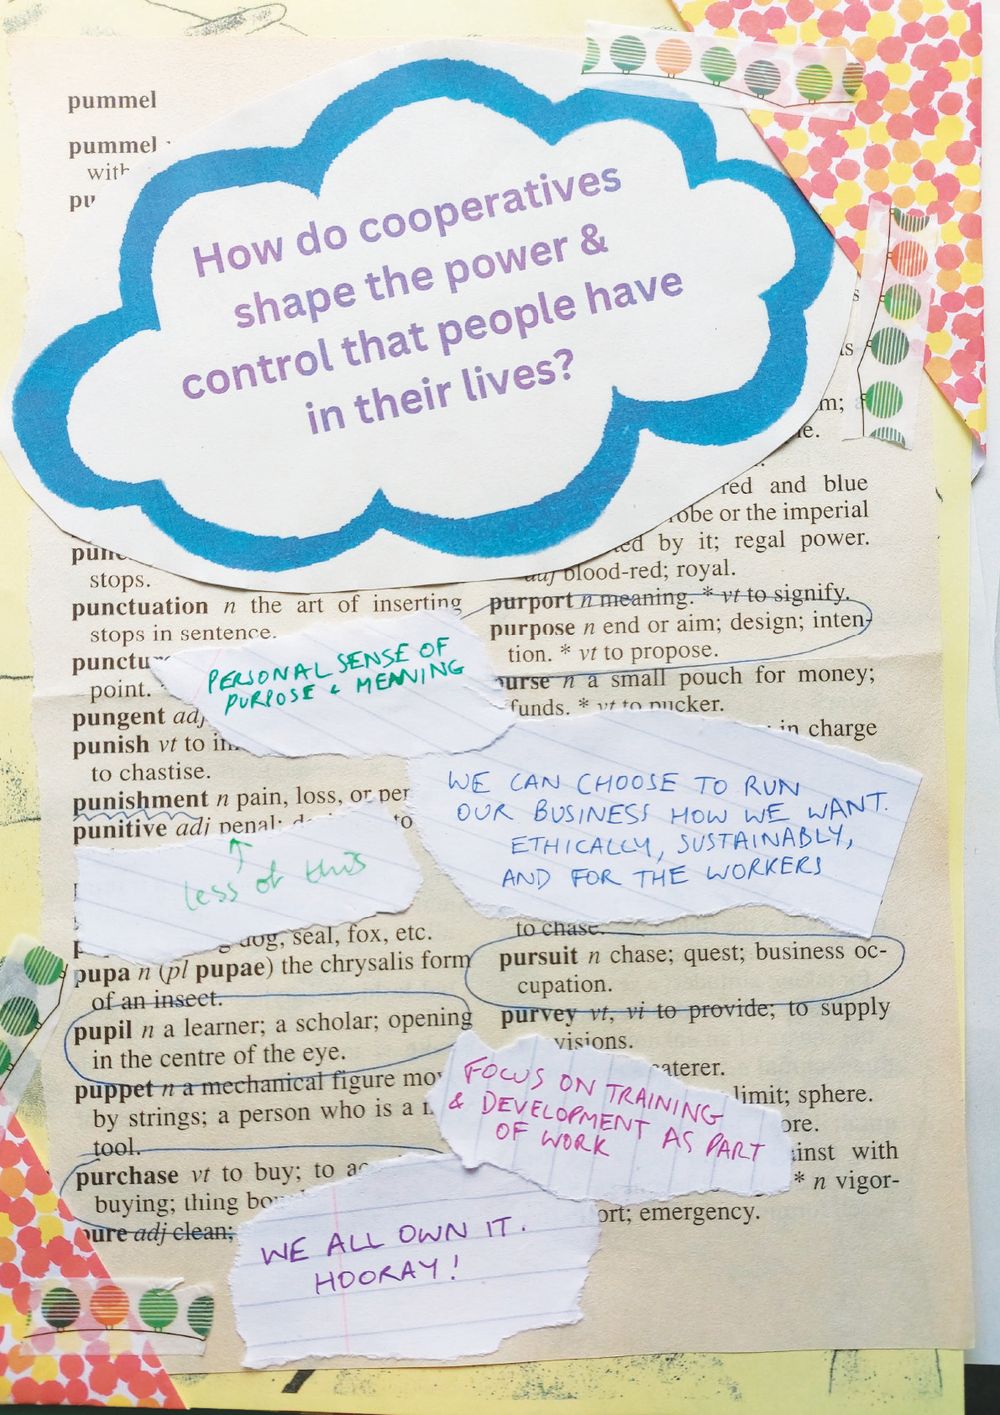 pummel
pummel
with
How do cooperatives
shape the power &
control that people have
in their lives?
red and blue
robe or the imperial
by it; regal power.
adj blood-red; royal.
stops.
punctuation n the art of inserting
stops in sentence.
point.
pungent adj
punish vt to
to chastise.
punishment n pain, loss, or
punitive adj penal; to
PERSONAL SENSE OF
PURPOSE & MEANING
less of this
dog, seal, fox, etc.
pupa n (pl pupae) the chrysalis form
of an insect.
pupil n a learner; a scholar; opening
in the centre of the eye.
puppet n a mechanical figure
by strings; a person who is a
tool.
purchase vt to buy; to
buying; thing
pure adj clean;
purport n meaning. * vt to signify.
purpose n end or aim; design; inten-
tion. * vt to propose.
purse n a small pouch for money;
funds. * vt to pucker.
in charge
WE CAN CHOOSE TO RUN
OUR BUSINESS HOW WE WANT.
ETHICALLY, SUSTAINABLY,
AND FOR THE WORKERS
to chase.
pursuit n chase; quest; business oc-
cupation.
purvey vt, vi to provide; to supply
caterer.
limit; sphere.
with
* n vigor-
emergency.
FOCUS ON TRAINING
& DEVELOPMENT AS PART
OF WORK
WE ALL OWN IT.
HOORAY!